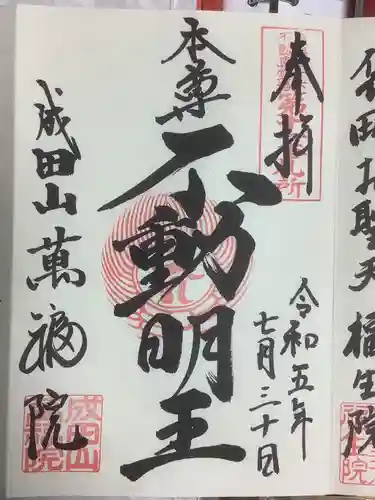 袋町お聖天 福生院
奉拝
令和五年
七月三十日
本尊
不動明王
成田山萬福院
成田山
萬福院